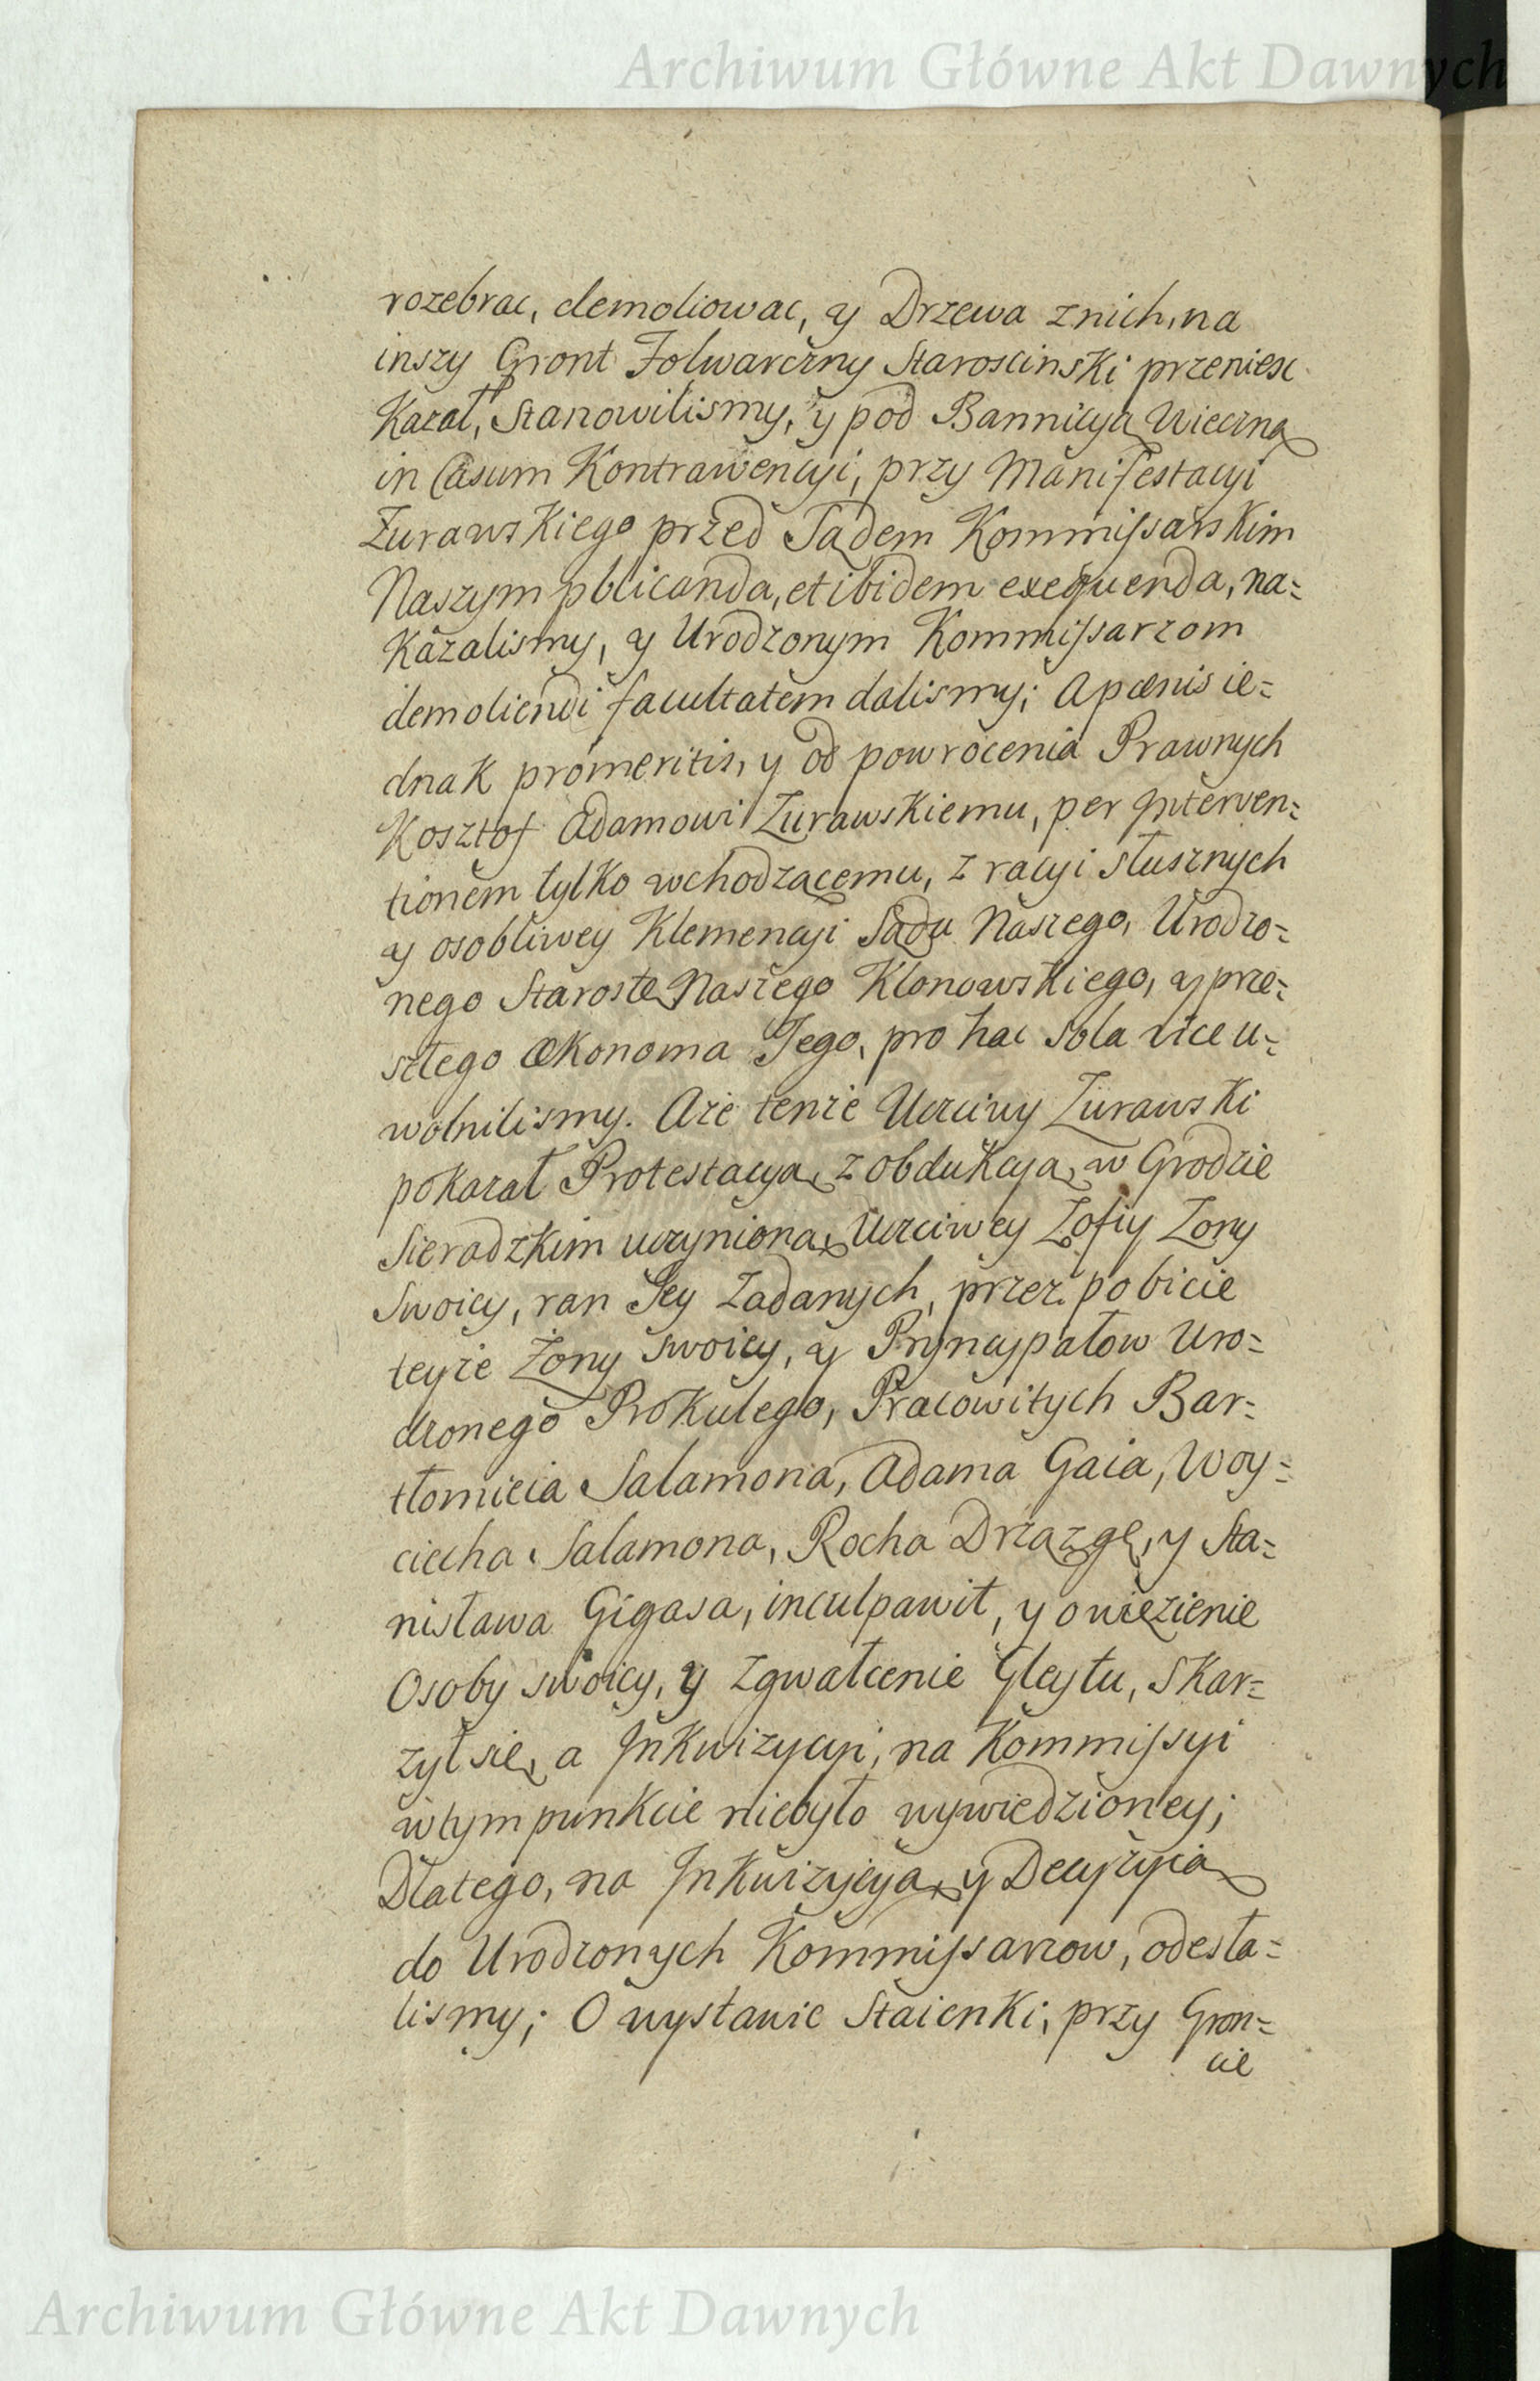 Archiwum Główne Akt Dawnych
rozebrac, demoliowac, y Drzewa z nich, na
inszy Gront Folwarczny Staroscinski przeniesc
Kazał, Stanowilismy, y pod Bannicyą Wieczną
in Casum Kontrawencyi, przy Manifestacyi
Żurawskiego przed Sądem Kommissarskim
Naszym pblicanda, et ibidem exequenda, na=
kazalismy, y Urodzonym Kommissarzom
demoliendi facultatem dalismy; A pœnis ie=
dnak promeritis, y od powrocenia Prawnych
Kosztof Adamowi Żurawskiemu, per Interven=
tionem tylko wchodzącemu, z racyi słusznych
y osobliwey Klemencyi Sądu Naszego, Urodzo=
nego Starostę Naszego Klonowskiego, y prze=
szłego Œkonoma Jego, pro hac sola vice u=
wolnilismy. A że tenże Uczciwy Żurawski
pokazał Protestacyą z obdukcyą w Grodzie
Sieradzkim uczynioną, Uczciwey Zofiy Żony
Swoicy, ran Jey zadanych, przez pobicie
teyże Żony swoicy, y Pryncypałow Uro=
dzonego Prokulego, Pracowitych Bar=
tłomieia Salamona, Adama Gaia, Woy=
ciecha Salamona, Rocha Drzazgę, y Sta=
nisława Gigasa, inculpawit, y o więzienie
Osoby swoicy, y zgwałcenie Gleytu, skar=
żył się, a Inkwizycyi, na Kommissyi
w tym punkcie niebyło wywiedzioney;
Dlatego, na Inkwizycyą, y Decyzyią
do Urodzonych Kommissarzow, odesła=
lismy; O wystawie Staienki, przy Gron=
cie
Archiwum Główne Akt Dawnych